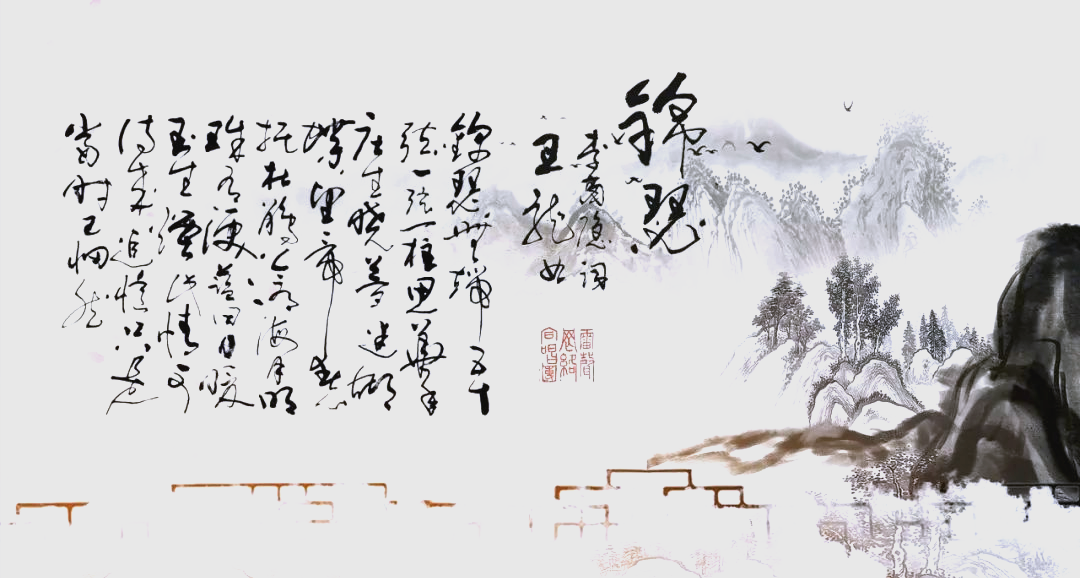 錦瑟
李商隐 词
王龙
錦瑟無端五十
弦一弦一柱思華年
庄生晓夢迷蝴
蝶望帝春心
托杜鹃沧海月明
珠有泪蓝田日暖
玉生煙此情可
待成追憶只是
當时已惘然
雷聲
合唱團